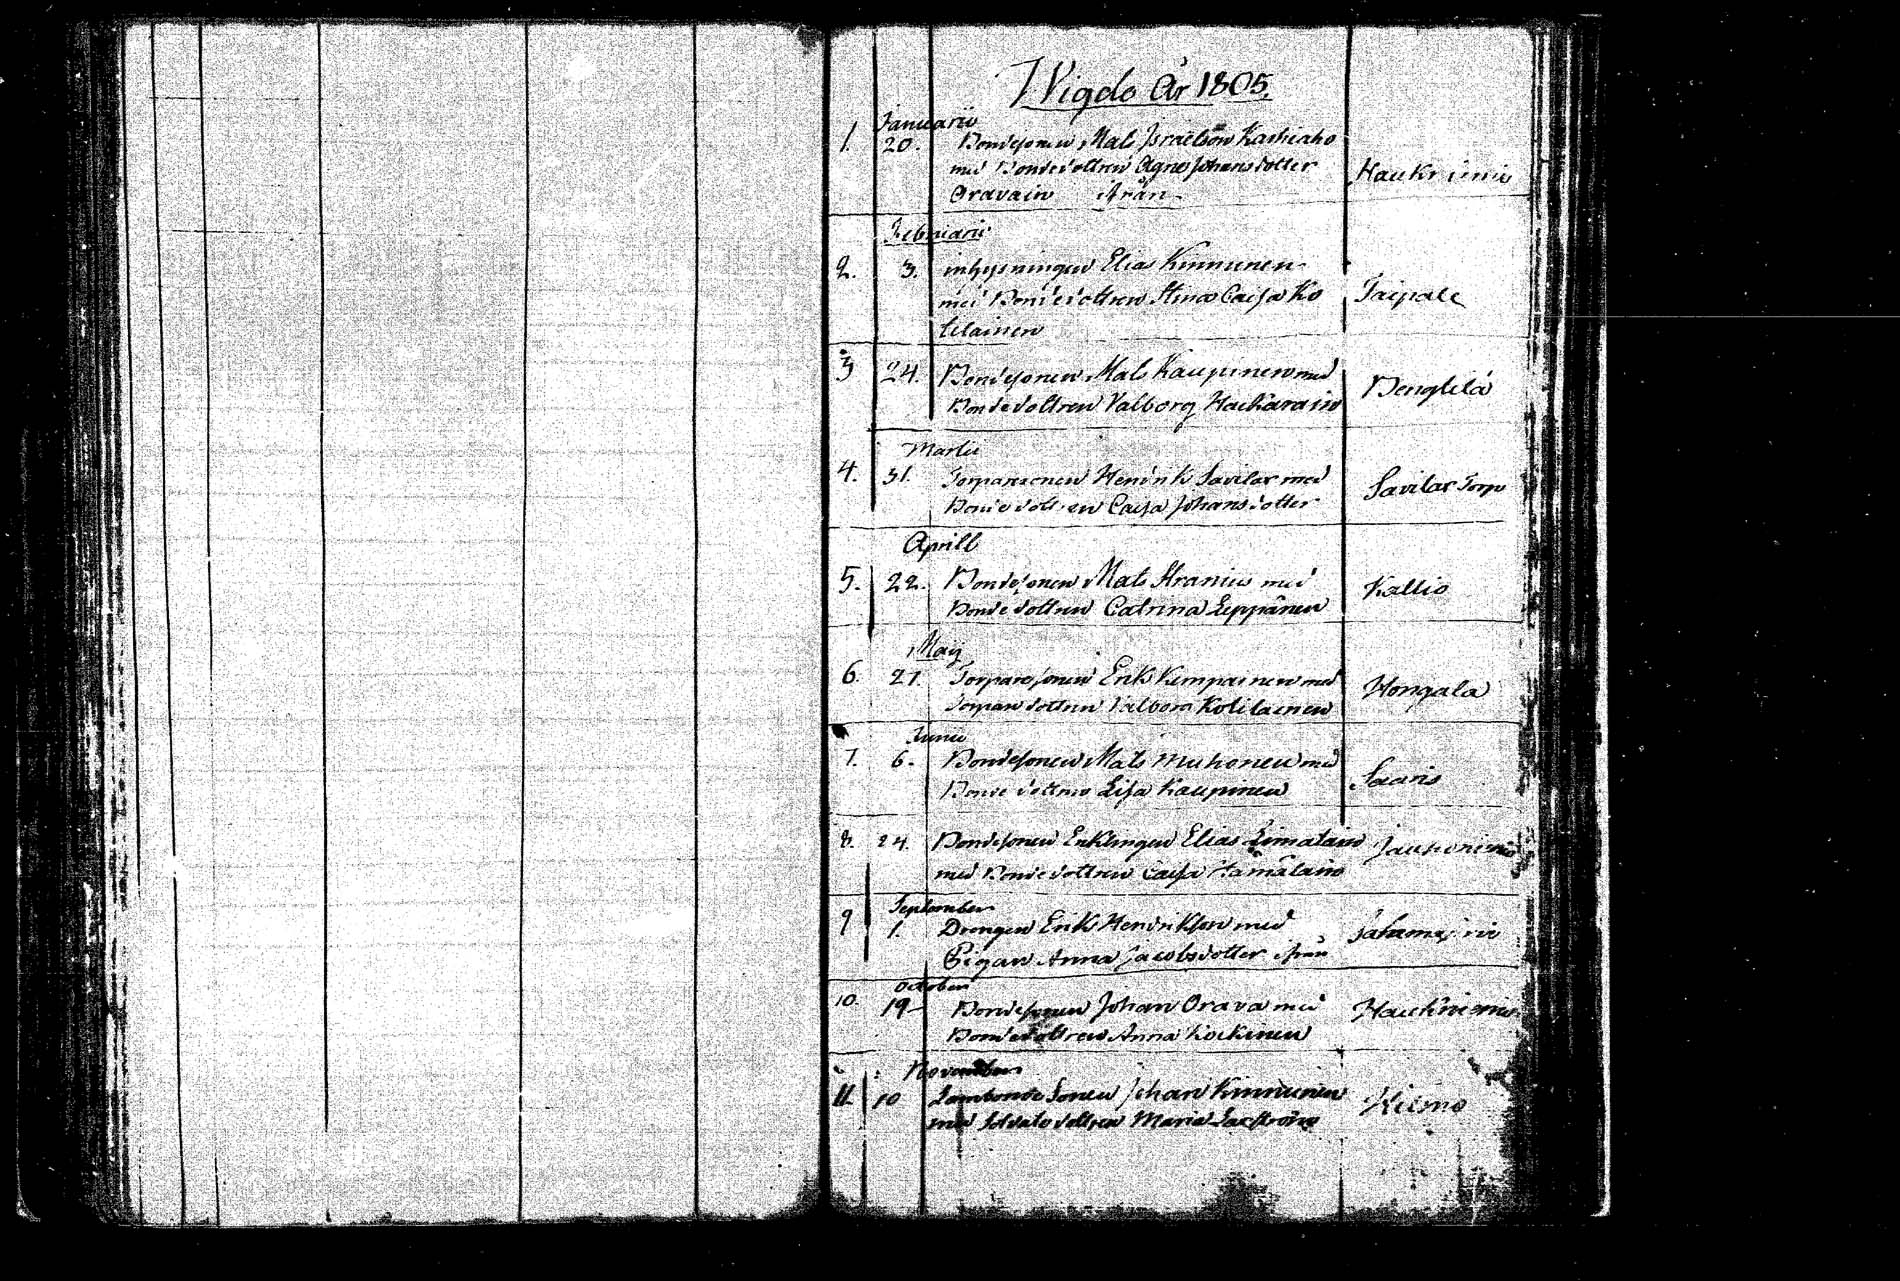 Wigde År 1805.
Januarii
1. 20. Bondesonen Mats Israelson Kaskiaho
med Bondedottren Agnes Johansdotter
Oravain ifrån Haukniemi
Februarii
2. 3. inhysningen Elias Kinnunen
med Bondedottren Stina Caisa Ko
lilainen Taipale
3 24. Bondesonen Mats Kaupinen med
Bondedottren Valborg Hackarain Bengtilä
Martii
4. 31. Torparesonen Hendrik Savilax med
Bondedottren Caisa Johansdotter Savilax Torp
Aprill
5. 22. Bondesonen Mats Hranin med
Bondedottren Catrina Leppänen Kallio
Maij
6. 21. Torparesonen Erik Kempainen med
Torparedottren Valbora Kolilainen Hongala
Junii
7. 6. Bondesonen Mats Muhonen med
Bondedottren Lisa Kaupinen Saaris
8. 24. Bondesonen Enklingen Elias Limatain
med Bondedottren Caisa Hämäläin
September
9 1. Drengen Erik Hendrikson med
Pigan Anna Jacobsdotter ifrån
October
10. 19 Bondesonen Johan Orava med
Bondedottren Anna Kockinen Haukniemi
November
11. 10 Lambonde Sonen Johan Kinnunen
med Soldats dottren Maria